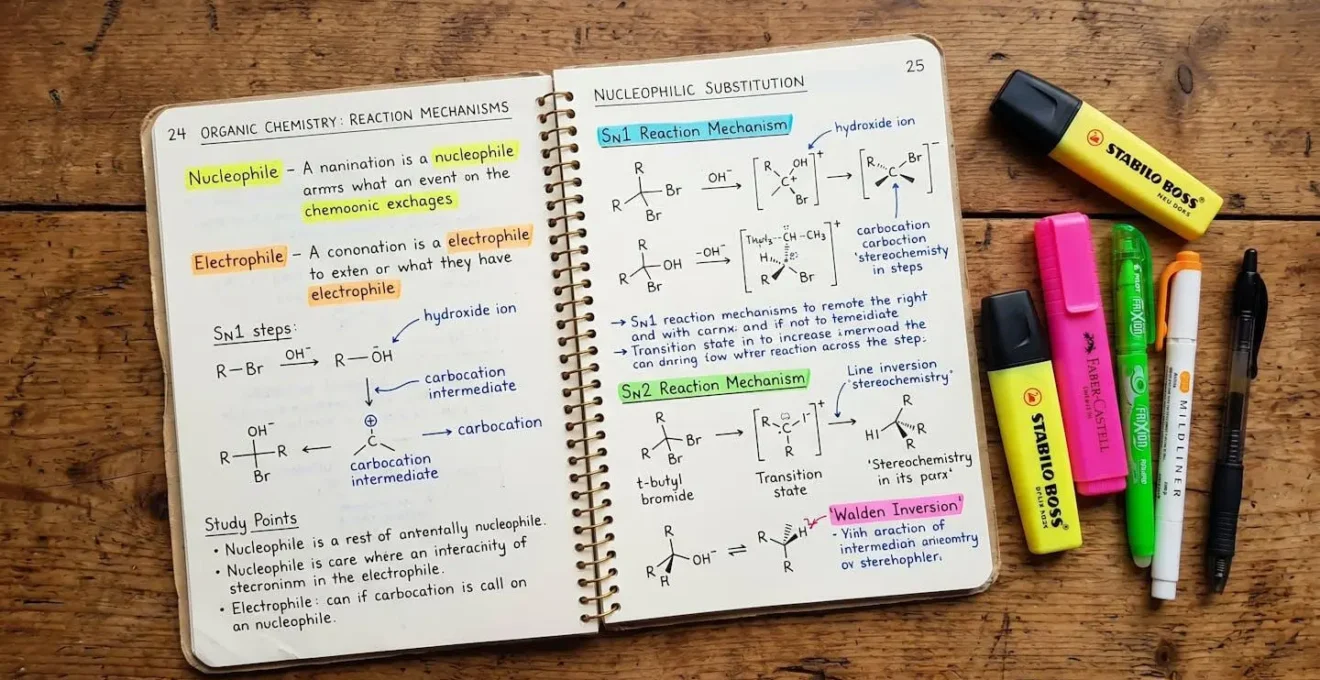 24 ORGANIC CHEMISTRY: REACTION MECHANISMS
Nucleophile – A nanination is a nucleophile
arms what an event on the
chemoonic exchages
Electrophile – A cononation is a electrophile
to exten or what they have
electrophile
SN1 steps:
hydroxide ion
R–Br OH⁻ R–OH
carbocation
intermediate
OH⁻
R R
Br
⊕
C
carbocation
carbocation
intermediate
Study Points
• Nucleophile is a rest of antentally nucleophile.
• Nucleophile is care where an interacnity of
stecroninm in the electrophile.
• Electrophile: can if carbocation is call on
an nucleophile.
25
NUCLEOPHILIC SUBSTITUTION
SN1 Reaction Mechanism
hydroxide ion
R
R Br
Br
OH⁻
R OH +
C+
Br
R Br –
C
carbocation
carboction
'stereochemisty
in steps
R
R OH
Br
-OH⁻
CH-CH₃ +
H
R Br
→ SN1 reaction mechanisms to remote the right
and with carnx. and if not to temeidiate
→ Transition state in to increase imermoad the
can dnring low wher reaction across the step:
SN2 Reaction Mechanism
Line inversion
'stereochemistry'
R
R Br
Br
t-butyl
bromide
R C I⁻ +
R
Transition
state
R
HI R
R
'Stereochemistry
in its parx'
'Walden Inversion'
- Yinh araction of
intermedian anieomtry
ov sterehophler.
R
R OH⁻
H
⇌
R H
R
STABILO BOSS
STABILO BOSS
FABER-CASTELL
PILOT
FRIXION
FRIXION
MILDLINER